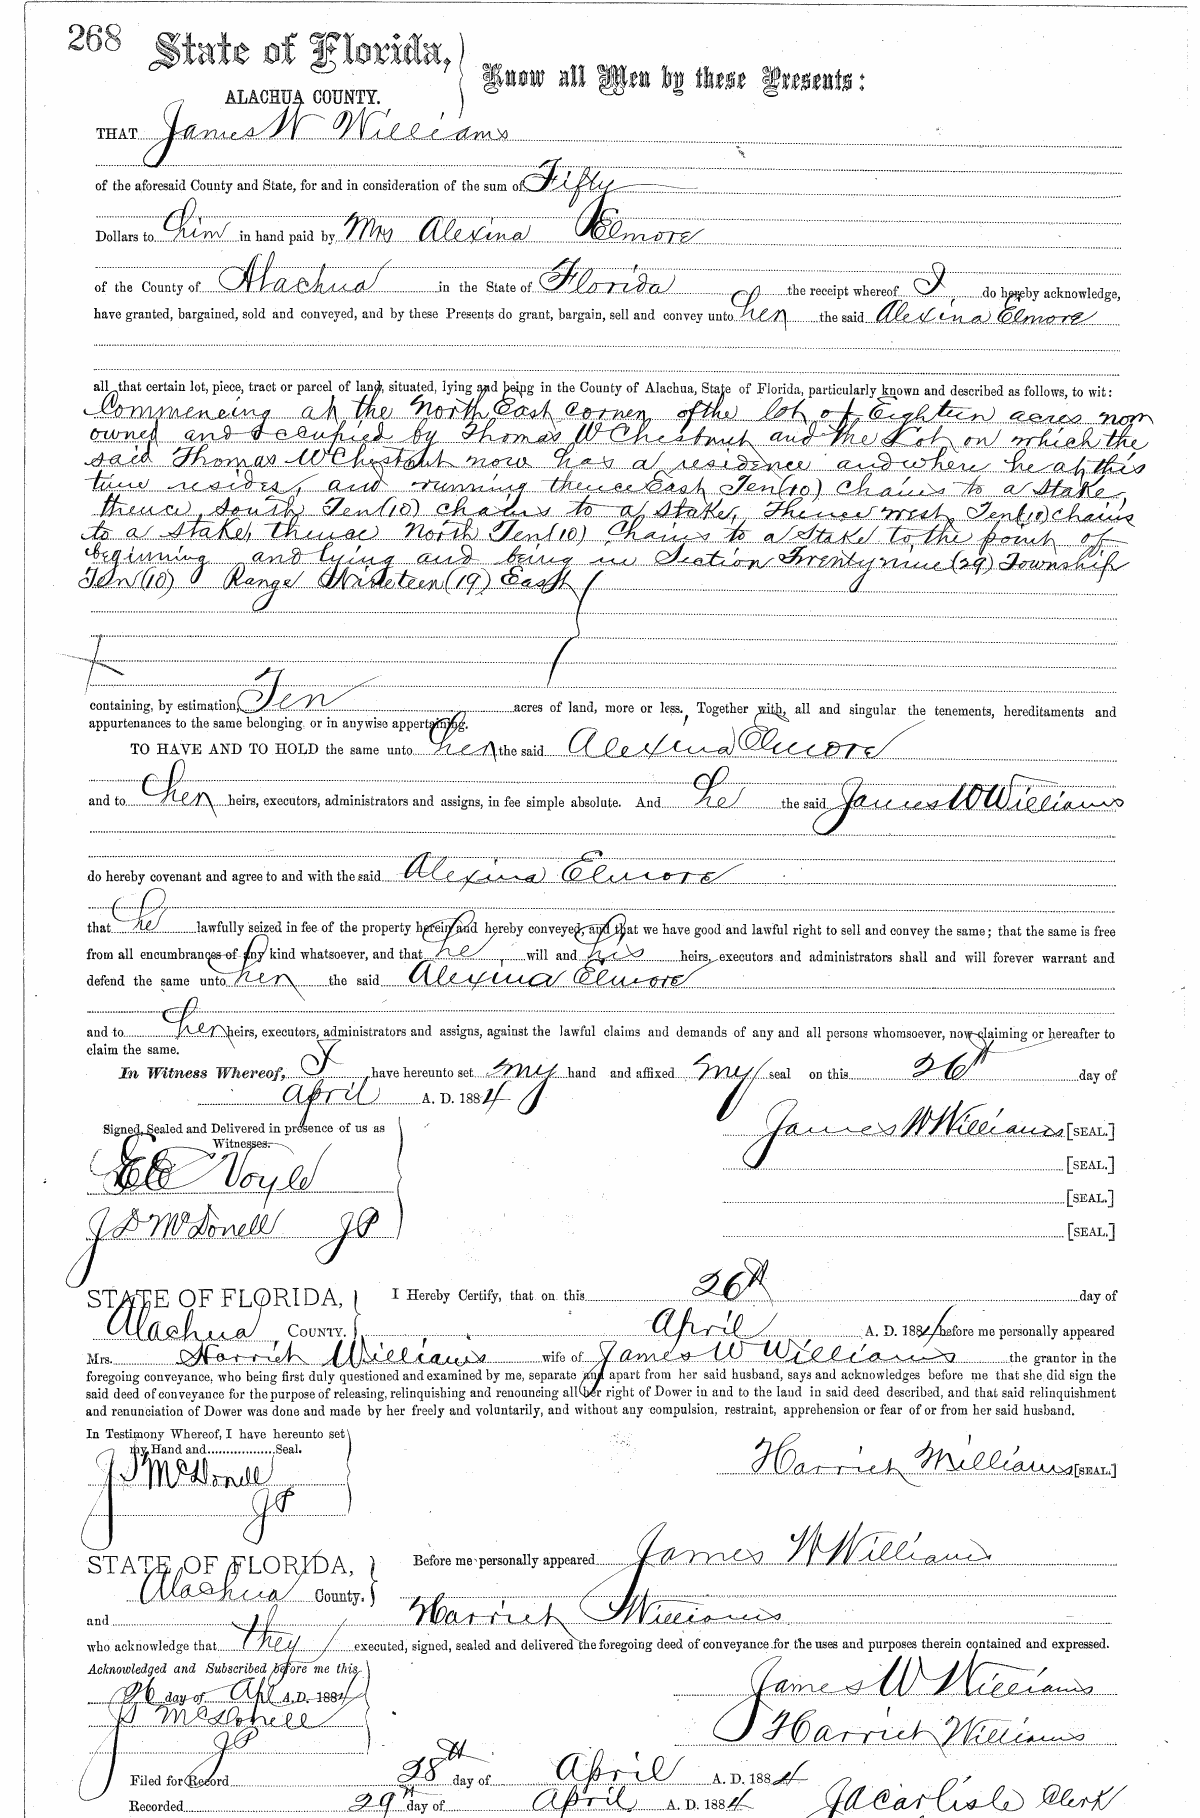 268
State of Florida,
ALACHUA COUNTY.
Know all Men by these Presents:
THAT James W Williams
of the aforesaid County and State, for and in consideration of the sum of Fifty
Dollars to him in hand paid by Mrs Alexina Elmore
of the County of Alachua in the State of Florida the receipt whereof I do hereby acknowledge,
have granted, bargained, sold and conveyed, and by these Presents do grant, bargain, sell and convey unto her the said Alexina Elmore
all that certain lot, piece, tract or parcel of land, situated, lying and being in the County of Alachua, State of Florida, particularly known and described as follows, to wit:
Commencing at the North East corner of the lot of Eighteen acres now
owned and occupied by Thomas W Chestnut and the Lot on which the
said Thomas W Chestnut now has a residence and where he at this
time resides, and running thence East Ten (10) chains to a Stake,
thence South Ten (10) chains to a Stake, Thence west Ten (10) chains
to a stake, thence North Ten (10) Chains to a Stake to the point of
beginning and lying and being in Section Twenty nine (29) Township
Ten (10) Range Nineteen (19) East
containing, by estimation, Ten acres of land, more or less. Together with, all and singular the tenements, hereditaments and
appurtenances to the same belonging or in anywise appertaining.
TO HAVE AND TO HOLD the same unto her the said Alexina Elmore
and to her heirs, executors, administrators and assigns, in fee simple absolute. And he the said James W Williams
do hereby covenant and agree to and with the said Alexina Elmore
that he lawfully seized in fee of the property herein and hereby conveyed, and that we have good and lawful right to sell and convey the same; that the same is free
from all encumbrances of any kind whatsoever, and that he will and his heirs, executors and administrators shall and will forever warrant and
defend the same unto her the said Alexina Elmore
and to her heirs, executors, administrators and assigns, against the lawful claims and demands of any and all persons whomsoever, now claiming or hereafter to
claim the same.
In Witness Whereof, I have hereunto set my hand and affixed my seal on this 26th day of
April A. D. 1884
Signed, Sealed and Delivered in presence of us as
Witnesses.
James W Williams [SEAL.]
[SEAL.]
Voyle
[SEAL.]
J D McDonell JP
[SEAL.]
STATE OF FLORIDA,
Alachua COUNTY.
I Hereby Certify, that on this 26th day of
April A. D. 1884 before me personally appeared
Mrs. Harriet Williams wife of James W Williams the grantor in the
foregoing conveyance, who being first duly questioned and examined by me, separate and apart from her said husband, says and acknowledges before me that she did sign the
said deed of conveyance for the purpose of releasing, relinquishing and renouncing all her right of Dower in and to the land in said deed described, and that said relinquishment
and renunciation of Dower was done and made by her freely and voluntarily, and without any compulsion, restraint, apprehension or fear of or from her said husband.
In Testimony Whereof, I have hereunto set
my Hand and................Seal.
J D McDonell
JP
Harriet Williams [SEAL.]
STATE OF FLORIDA,
Alachua County.
Before me personally appeared James W Williams
and Harriet Williams
who acknowledge that they executed, signed, sealed and delivered the foregoing deed of conveyance for the uses and purposes therein contained and expressed.
Acknowledged and Subscribed before me this
26 day of Apl A.D. 1884
J D McDonell
JP
James W Williams
Harriet Williams
Filed for Record 28th day of April A. D. 1884
Recorded 29th day of April A. D. 1884 J A Carlisle Clerk